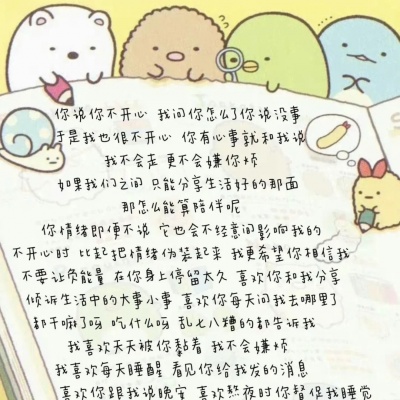 你说你不开心 我问你怎么了你说没事
于是我也很不开心 你有心事就和我说
我不会走 更不会嫌你烦
如果我们之间 只能分享生活好的那面
那怎么能算陪伴呢
你情绪即便不说 它也会不经意间影响我的
不开心时 比起把情绪伪装起来 我更希望你相信我
不要让负能量 在你身上停留太久 喜欢你和我分享
倾诉生活中的大事小事 喜欢你每天问我去哪里了
都干嘛了呀 吃什么呀 乱七八糟的都告诉我
我喜欢天天被你黏着 我不会嫌烦
我喜欢每天睡醒 看见你给我发的消息
喜欢你跟我说晚安 喜欢熬夜时你督促我睡觉